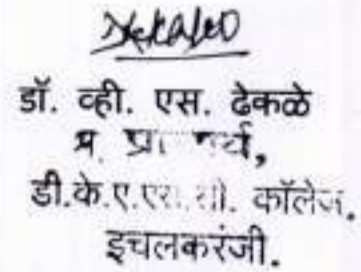 डॉ. व्ही. एस. ढेकळे
प्र. प्राचार्य,
डी.के.ए.एस.सी. कॉलेज,
इचलकरंजी.